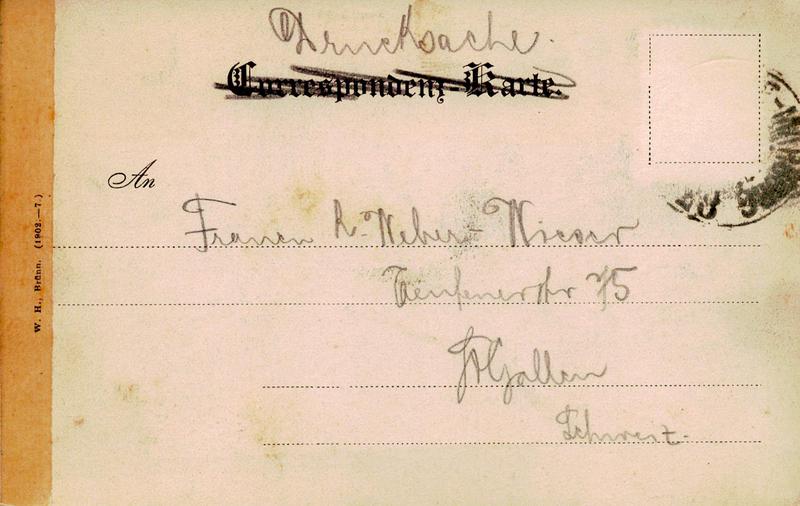 Drucksache.
Correspondenz-Karte.
An
Frauen R. Weber-Wieser
Teufenerstr 75
St Gallen
Schweiz.
W. H., Brünn. (1902.—7.)